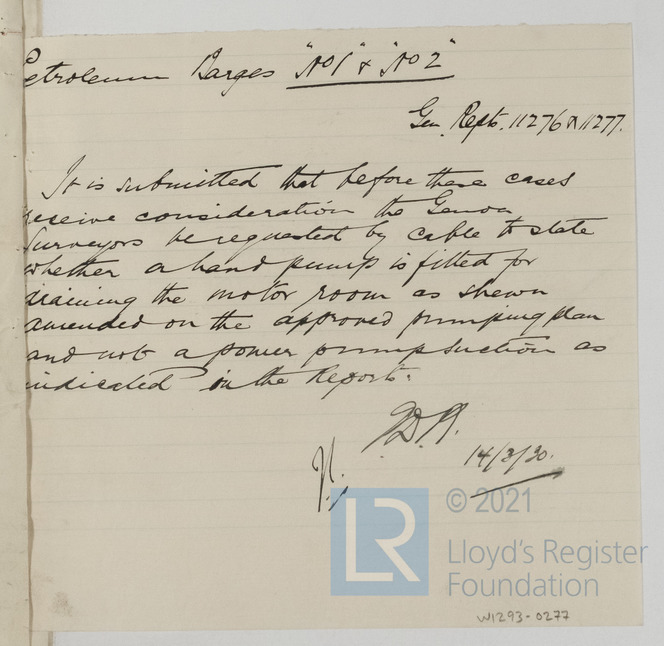 Petroleum Barges "No 1" & "No 2"
Gen. Repts. 11276 & 11277.
It is submitted that before these cases
receive consideration the Genoa
Surveyors be requested by cable to state
whether a hand pump is fitted for
draining the motor room as shewn
amended on the approved pumping plan
and not a power pump suction as
indicated in the Reports.
14/3/30.
LR
© 2021
Lloyd's Register
Foundation
W1293-0277